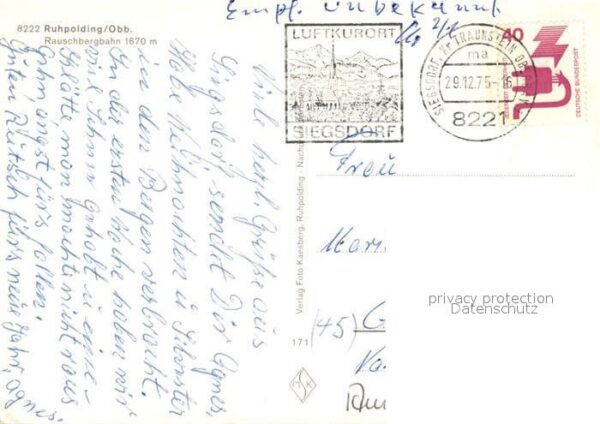 Empf. unbekannt
8222 Ruhpolding/Obb.
Rauschbergbahn 1670 m
LUFTKURORT
SIEGSDORF
SIEGSDORF, Kr TRAUNSTEIN
ma
29.12.75-16
8221
40
DEUTSCHE BUNDESPOST
Viele herzl. Grüße aus
Siegsdorf sendet Dir Agnes,
Habe Weihnachten u. Silvester
in den Bergen verbracht.
In der ersten Woche haben wir
viel Schnee gehabt u. eine
Glätte man möchte nicht raus
gehn angst fürs fallen.
Guten Rutsch fürs neue Jahr, Agnes.
Verlag Foto Kaesberg, Ruhpolding
171
Frau
Mar
(45) G
privacy protection
Datenschutz